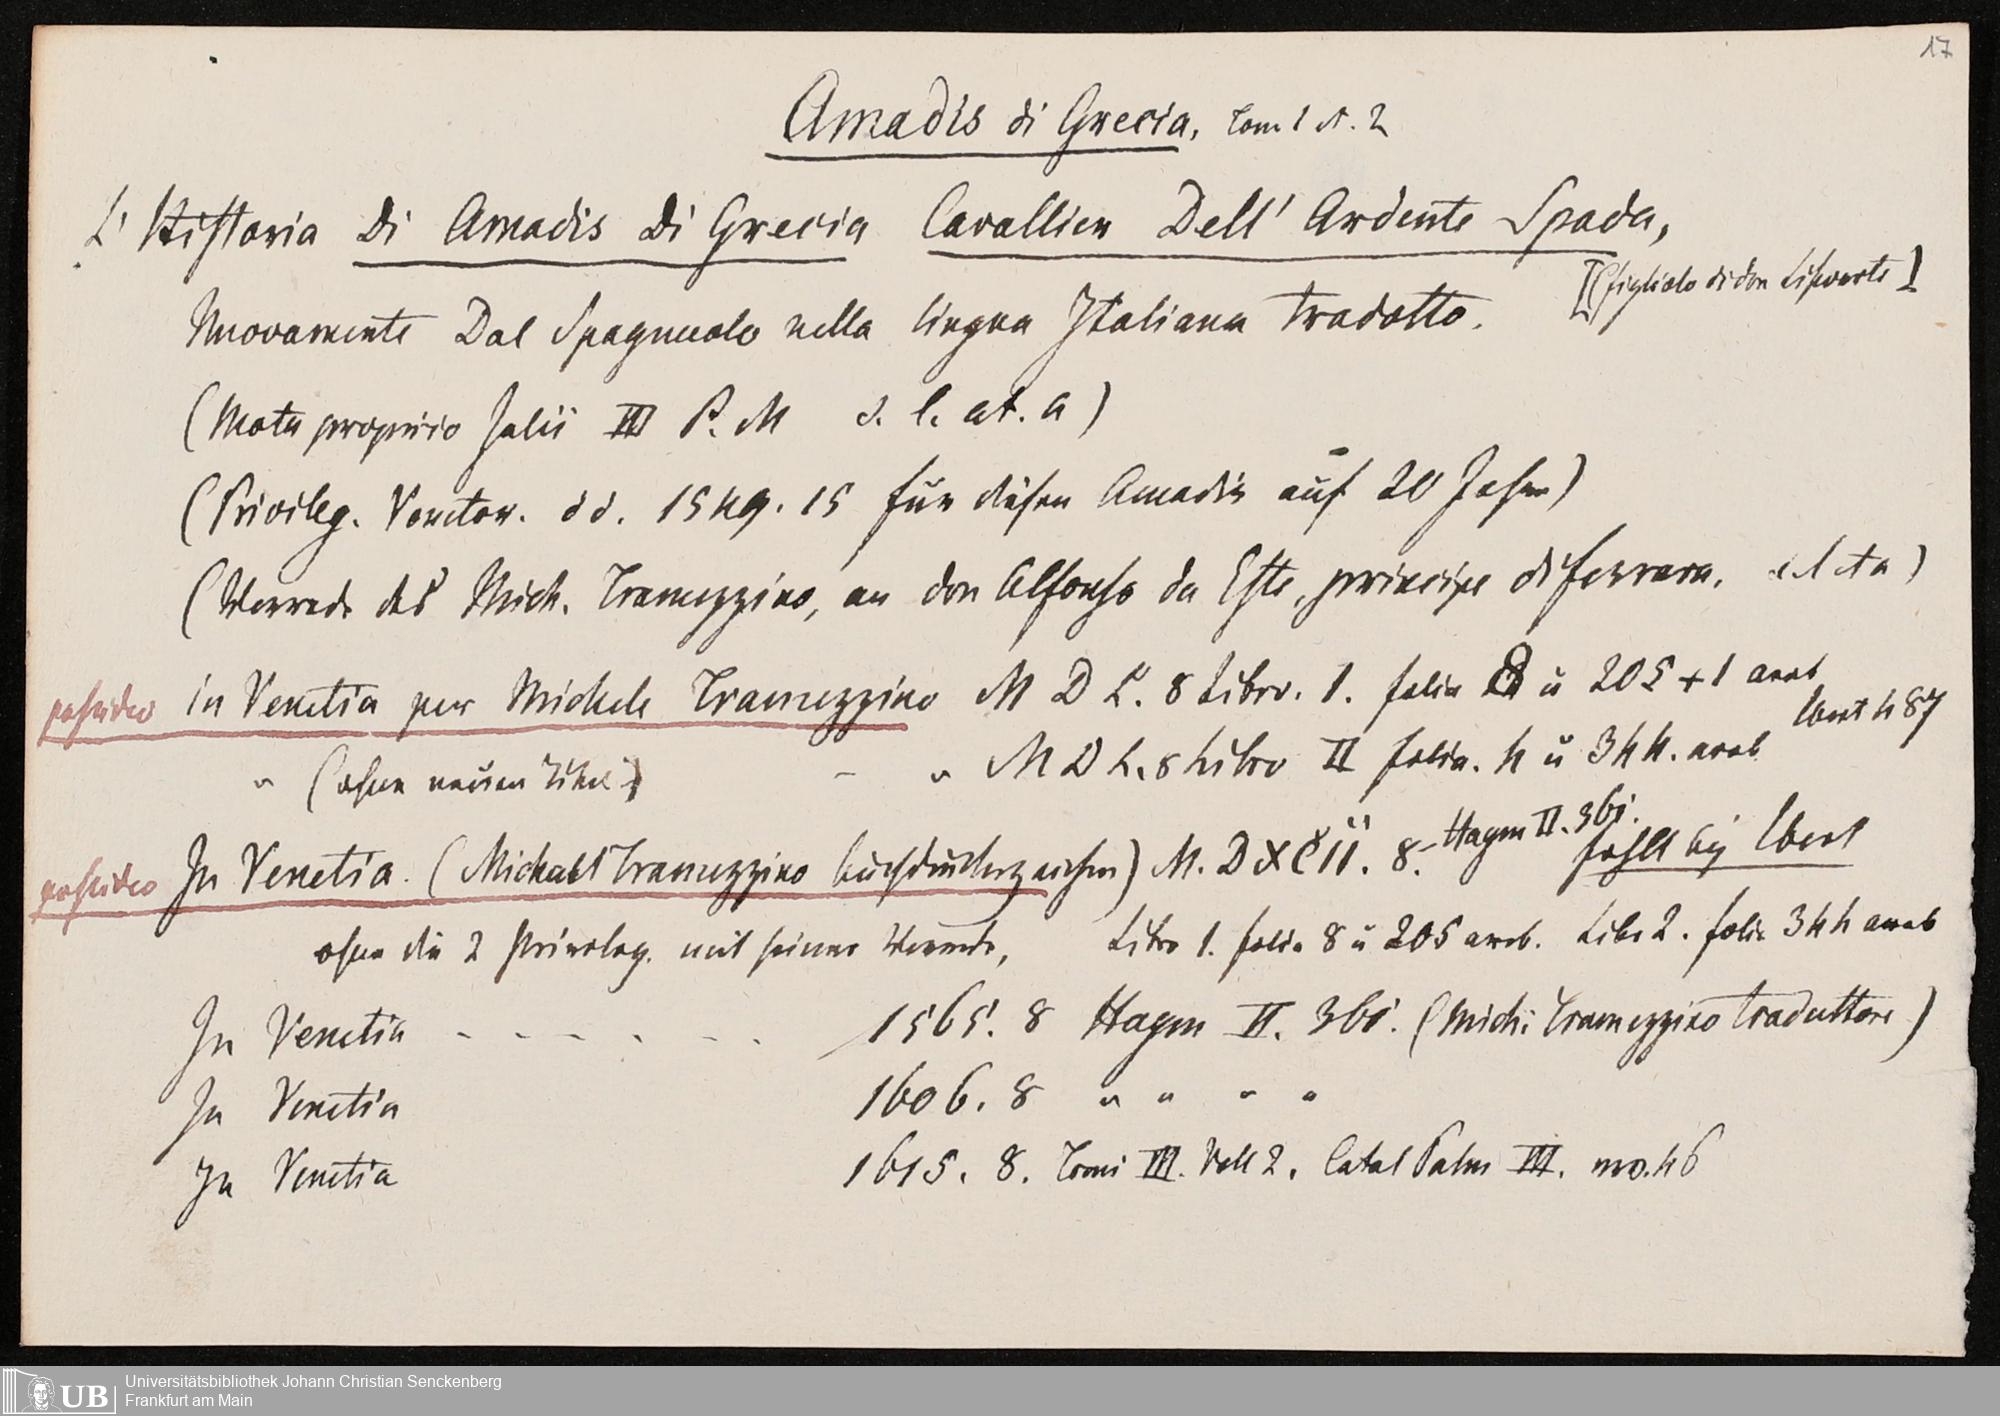 17
Amadis di Grecia, Tom 1 u. 2
L' Historia Di Amadis Di Grecia Cavallier Dell' Ardente Spada,
[(figliolo di don Lisuarte]
Nuovamente Dal Spagnuolo nella lingua Italiana tradotto.
(Motu proprio Julii III P. M s. l. at. a)
(Privileg. Venetor. dd. 1549. 15 für diesen Amadis auf 20 Jahr)
(Vorrede des Mich. Tramezzino, an don Alfonso da Este, principe di Ferrara.
possideo in Venetia per Michele Tramezzino M D L. 8 Libro. 1. folia 8 u 205 + 1 arab
Ebert 487
" (ohne neuen Titel) – " M D L. 8 Libro II folia. 4 u 344. arab
possideo In Venetia. (Michael Tramezzino buchdruckerzeichen) M. D XCII. 8. Hagm II. 361. fehlt bej Ebert
ohne die 2 Privileg. mit seiner Vorrede, Libro 1. folia 8 u 205 arab. Libr 2. folia 344 arab
In Venetia - - - - - - - 1565. 8 Hagm II. 361. (Mich: Tramezzino traduttore)
In Venetia 1606. 8 " " " "
In Venetia 1615. 8. Tomi III. Voll 2. Catal Palm III. nro. 46
UB Universitätsbibliothek Johann Christian Senckenberg
Frankfurt am Main